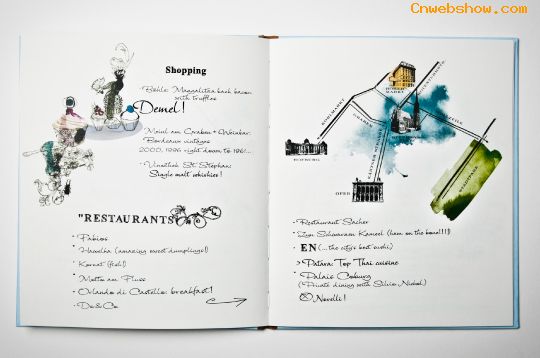 Cnwebshow.com
Shopping
Böhle: Mangalitza back bacon
with truffles
Demel!
Meinl am Graben + Weinbar:
Bordeaux vintages
2000, 1996 right down to 1961...
Vinothek St. Stephan:
Single malt whiskies!
"RESTAURANTS
Fabios
Hawelka (amazing sweet dumplings!)
Kornat (fish!)
Motto am Fluss
Orlando di Castello: breakfast!
Do&Co
HOHER
MARKT
NAGLMARKT
GRABEN
KÄRNTNER
HOFBURG
OPER
WOLLZEILE
STADTPARK
Restaurant Sacher
Zum Schwarzen Kameel (ham on the bone!!!)
EN (... the city's best sushi)
> Patara: Top Thai cuisine
Palais Coburg
(Private dining with Silvio Nickol)
Novelli!